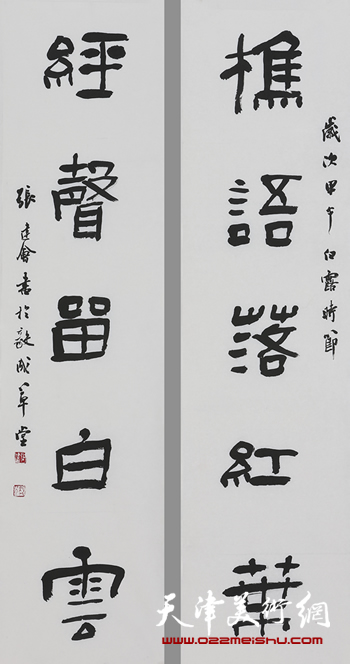 歲次甲午白露時節
樵語落紅葉
經聲留白雲
張建會書於成草堂
天津美術網
www.022meishu.com